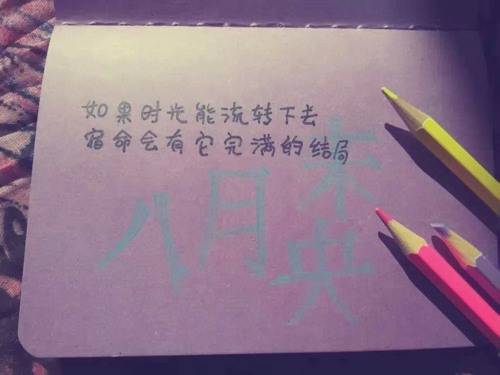 如果时光能流转下去
宿命会有它完满的结局
八月未央